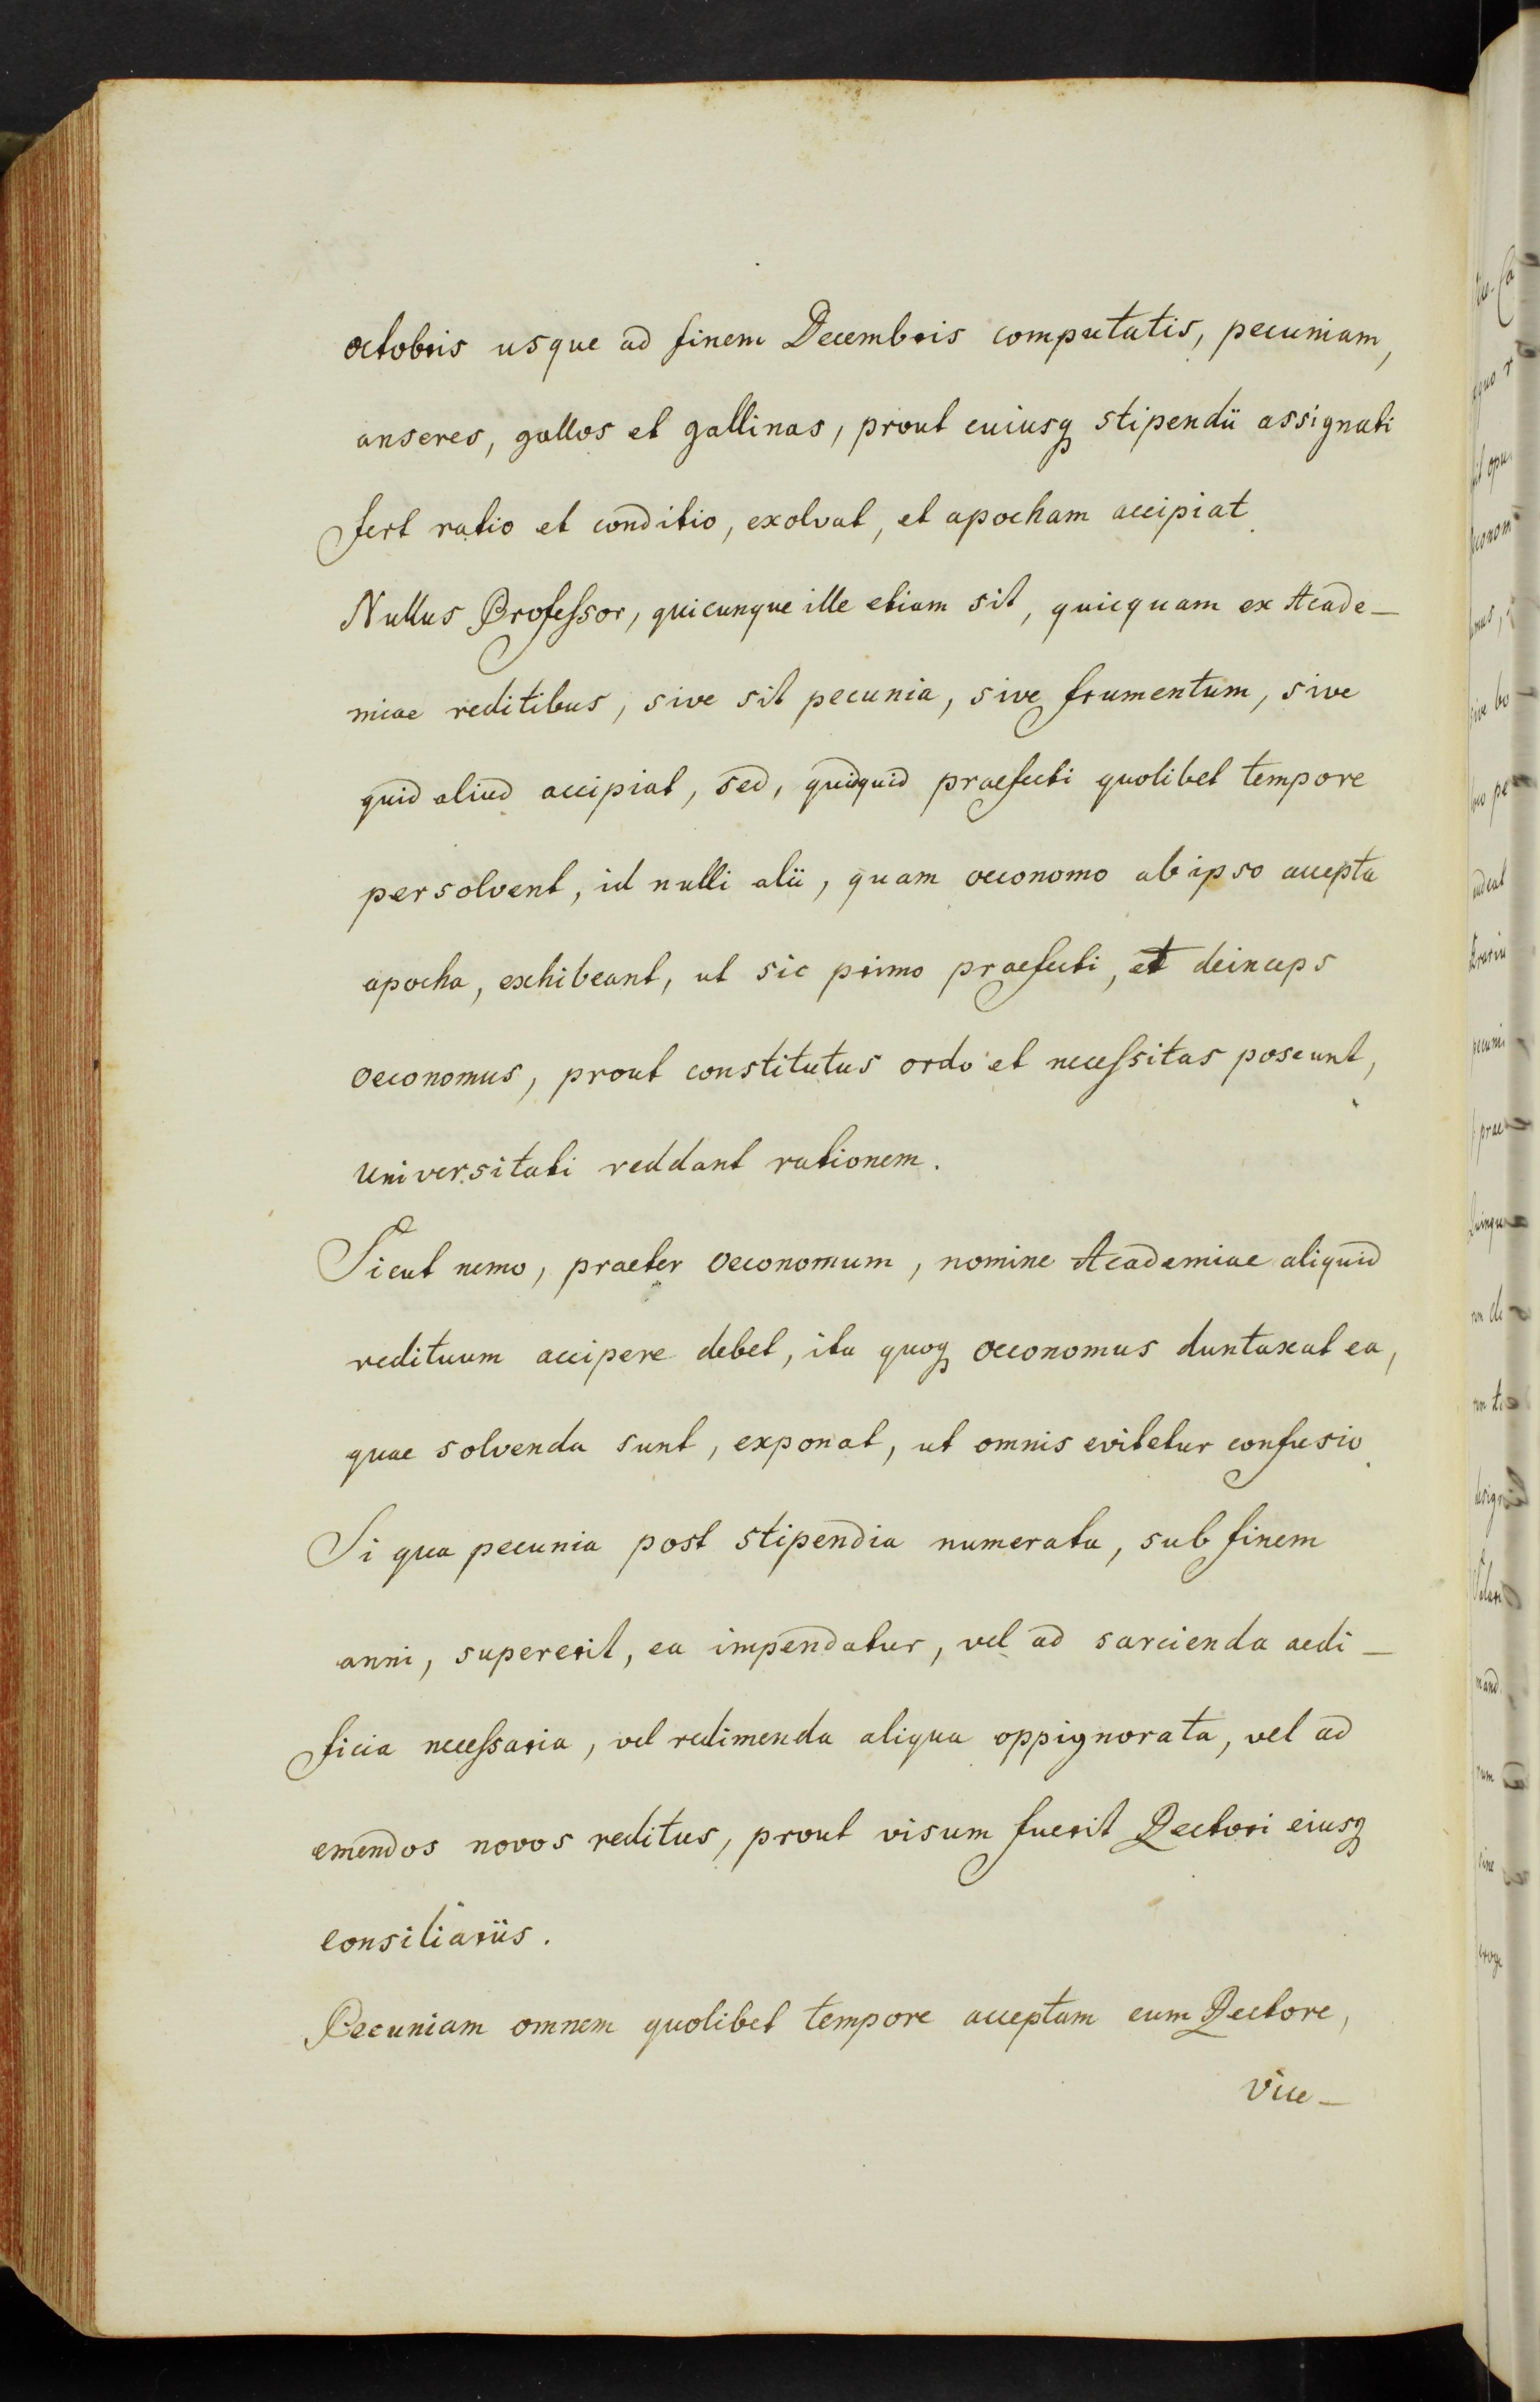 octobris usque ad finem Decembris computatis, pecuniam,
anseres, gallos et gallinas, prout cuiusq stipendii assignati
fert ratio et conditio, exolvat, et apocham accipiat.
Nullus Professor, quicunque ille etiam sit, quicquam ex Acade-
miae reditibus, sive sit pecunia, sive frumentum, sive
quid aliud accipiat, sed, quidquid praefecti quolibet tempore
persolvent, id nulli alii, quam oeconomo ab ipso accepta
apocha, exhibeant, ut sic primo praefecti, et deinceps
oeconomus, prout constitutus ordo et necessitas poscunt,
universitati reddant rationem.
Sicut nemo, praeter oeconomum, nomine Academiae aliquid
redituum accipere debet, ita quoq oeconomus duntaxat ea,
quae solvenda sunt, exponat, ut omnis evitetur confusio.
Si qua pecunia post stipendia numerata, sub finem
anni, supererit, ea impendatur, vel ad sarcienda aedi-
ficia necessaria, vel redimenda aliqua oppignorata, vel ad
emendos novos reditus, prout visum fuerit Rectori eiusq
consiliariis.
Pecuniam omnem quolibet tempore acceptam cum Rectore,
Vice-